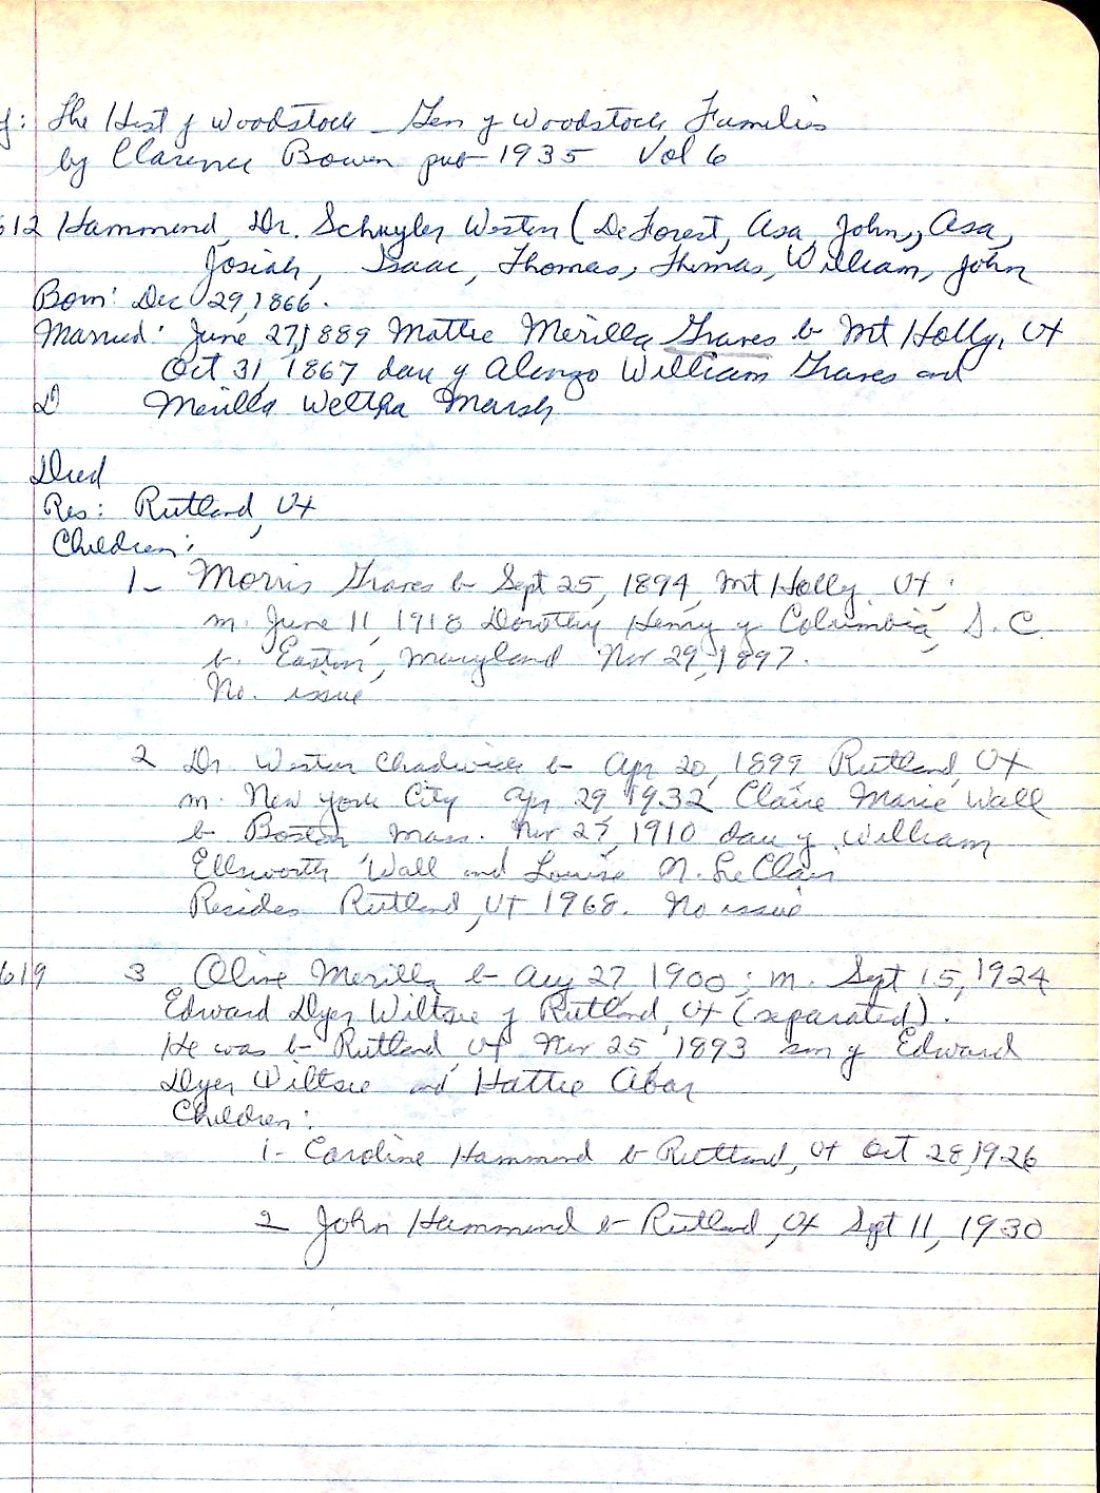 f: The Hist of Woodstock - Gen of Woodstock Families
by Clarence Bowen pub 1935 Vol 6
612 Hammond, Dr. Schuyler Weston (DeForest, Asa, John, Asa,
Josiah, Isaac, Thomas, Thomas, William, John
Born: Dec 29, 1866.
Married: June 27, 1889 Mattie Merilla Graves b- Mt Holly, Vt
Oct 31, 1867 dau of Alonzo William Graves and
D Merilla Weltha Marsh
Died
Res: Rutland, Vt
Children:
1- Morris Graves b- Sept 25, 1894, Mt Holly, Vt;
m. June 11, 1918 Dorothy Henry of Columbia, S.C.
b. Easton, Maryland Nov 29, 1897.
No. issue
2 Dr Weston Chadwick b- Apr 20, 1899 Rutland, Vt
m. New York City Apr 29 1932 Claire Marie Wall
b- Boston, Mass. Nov 27, 1910 dau of William
Ellsworth Wall and Louise N. LeClair
Resides Rutland, Vt 1968. No issue
619 3 Olive Merilla b- Aug 27, 1900; m. Sept 15, 1924
Edward Dyer Wiltsie of Rutland, Vt (separated).
He was b- Rutland, Vt Nov 25, 1893 son of Edward
Dyer Wiltsie and Hattie Abar
Children:
1- Caroline Hammond b- Rutland, Vt Oct 28, 1926
2 John Hammond b- Rutland, Vt Sept 11, 1930